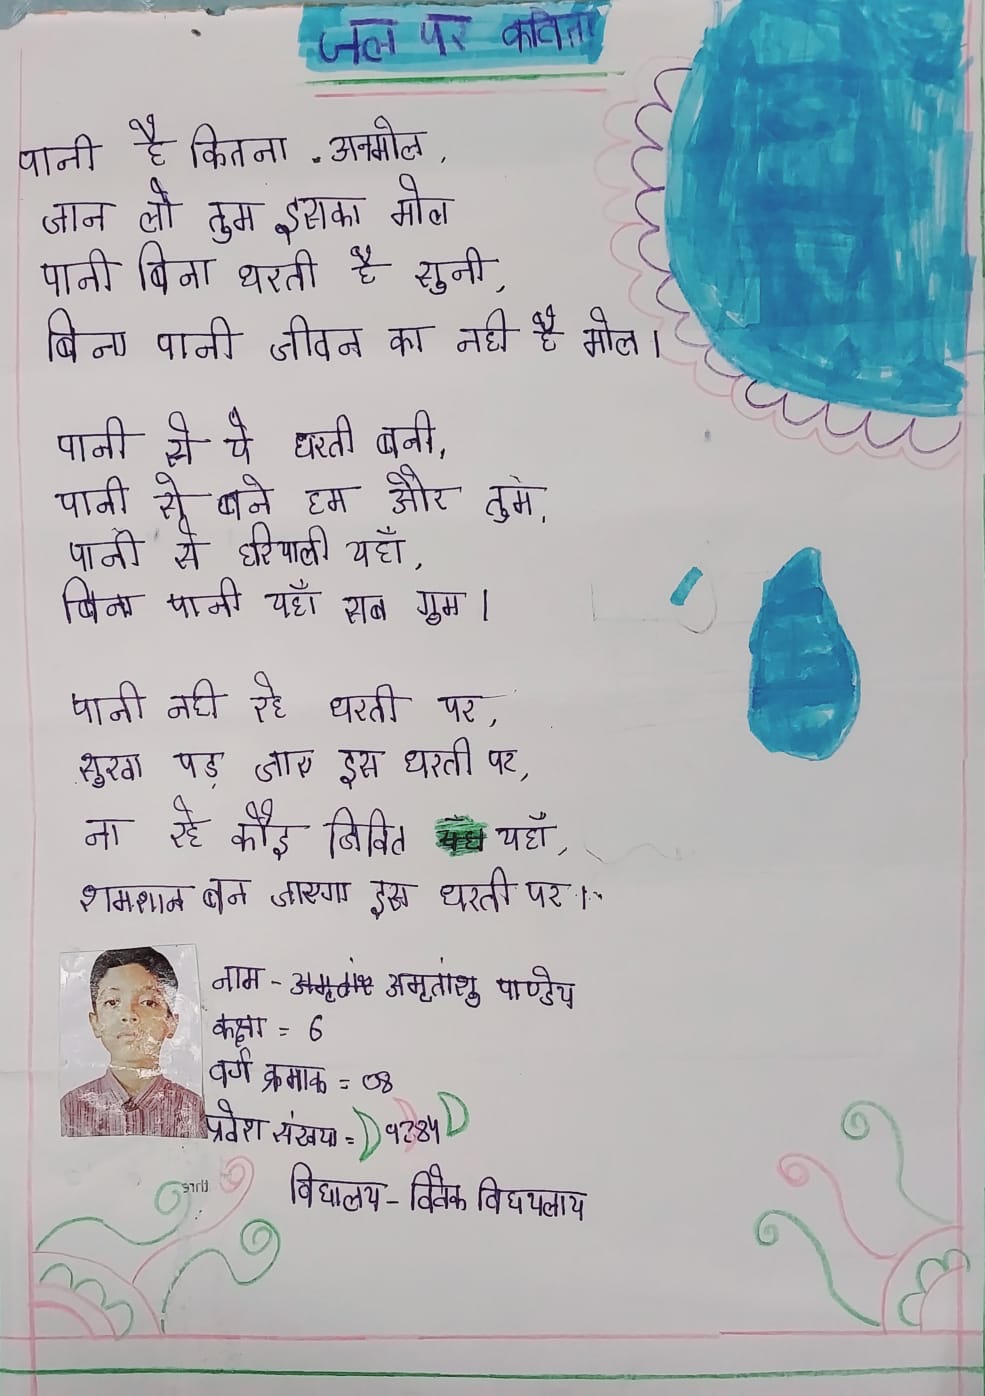 जल पर कविता
पानी है कितना . अनमोल ,
जान लो तुम इसका मोल
पानी बिना धरती है सुनी,
बिना पानी जीवन का नही है मोल ।
पानी से ये धरती बनी,
पानी से बने हम और तुम,
पानी से हरियाली यहाँ,
बिना पानी यहाँ सब गुम ।
पानी नही रहे धरती पर,
सुखा पड़ जाए इस धरती पर,
ना रहे कोई जिवित यहाँ,
शमशान बन जाएगा इस धरती पर ।
नाम - अमृतांशु पाण्डेय
कक्षा = 6
वर्ग क्रमाक = 08
प्रवेश संखया =
विद्यालय - विवेक विद्ययलाय